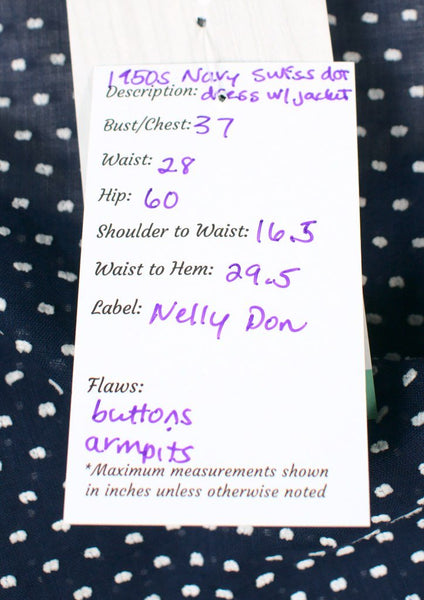 1950s Navy swiss dot
Description: dress w/ jacket
Bust/Chest: 37
Waist: 28
Hip: 60
Shoulder to Waist: 16.5
Waist to Hem: 29.5
Label: Nelly Don
Flaws:
buttons
armpits
*Maximum measurements shown
in inches unless otherwise noted